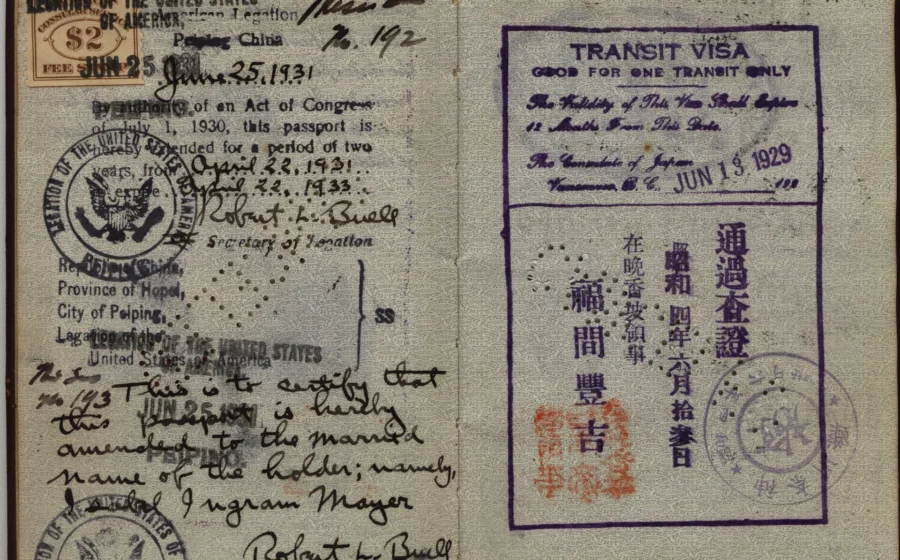 LEGATION OF THE UNITED STATES
OF AMERICA,
American Legation
Peiping China
No. 192
$2
FEE
JUN 25 1931
June 25, 1931
PEIPING.
By authority of an Act of Congress
of July 1, 1930, this passport is
hereby extended for a period of two
years, from April 22, 1931
to expire April 22, 1933.
Robert L. Buell
Secretary of Legation
LEGATION OF THE UNITED STATES OF AMERICA
PEIPING
Republic of China,
Province of Hopei,
City of Peiping,
Legation of the
United States of America
SS
LEGATION OF THE UNITED STATES
OF AMERICA
No 193
JUN 25 1931
PEIPING
This is to certify that
this passport is hereby
amended to the married
name of the holder; namely,
Ingram Mayer
Robert L. Buell
LEGATION OF THE UNITED STATES OF
TRANSIT VISA
GOOD FOR ONE TRANSIT ONLY
The Validity of This Visa Shall Expire
12 Months From This Date.
The Consulate of Japan
Vancouver, B. C. JUN 13 1929 192
通過査證
昭和四年六月拾参日
在晩香坡領事
福間豐吉